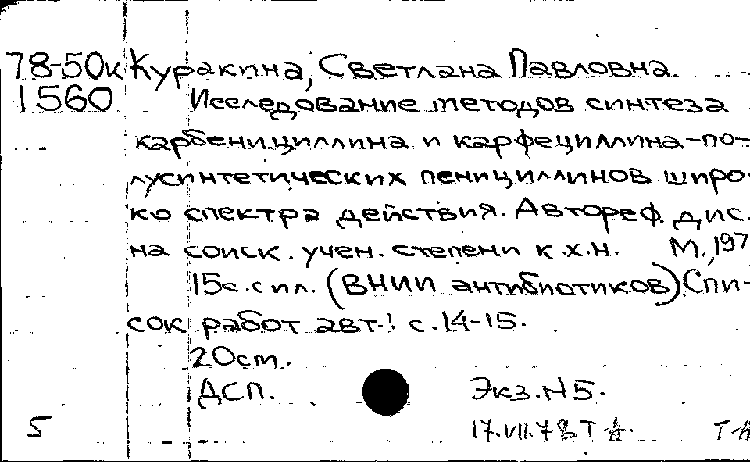 78-50к Куракина, Светлана Павловна.
1560 Исследование методов синтеза
карбенициллина и карфециллина-по-
лусинтетических пенициллинов широ-
ко спектра действия. Автореф. дис.
на соиск. учен. степени к.х.н. М., 197
15с. с ил. (ВНИИ антибиотиков) Спи-
сок работ авт.: с.14-15.
20см.
ДСП. Экз. №5.
5 17.VII.78